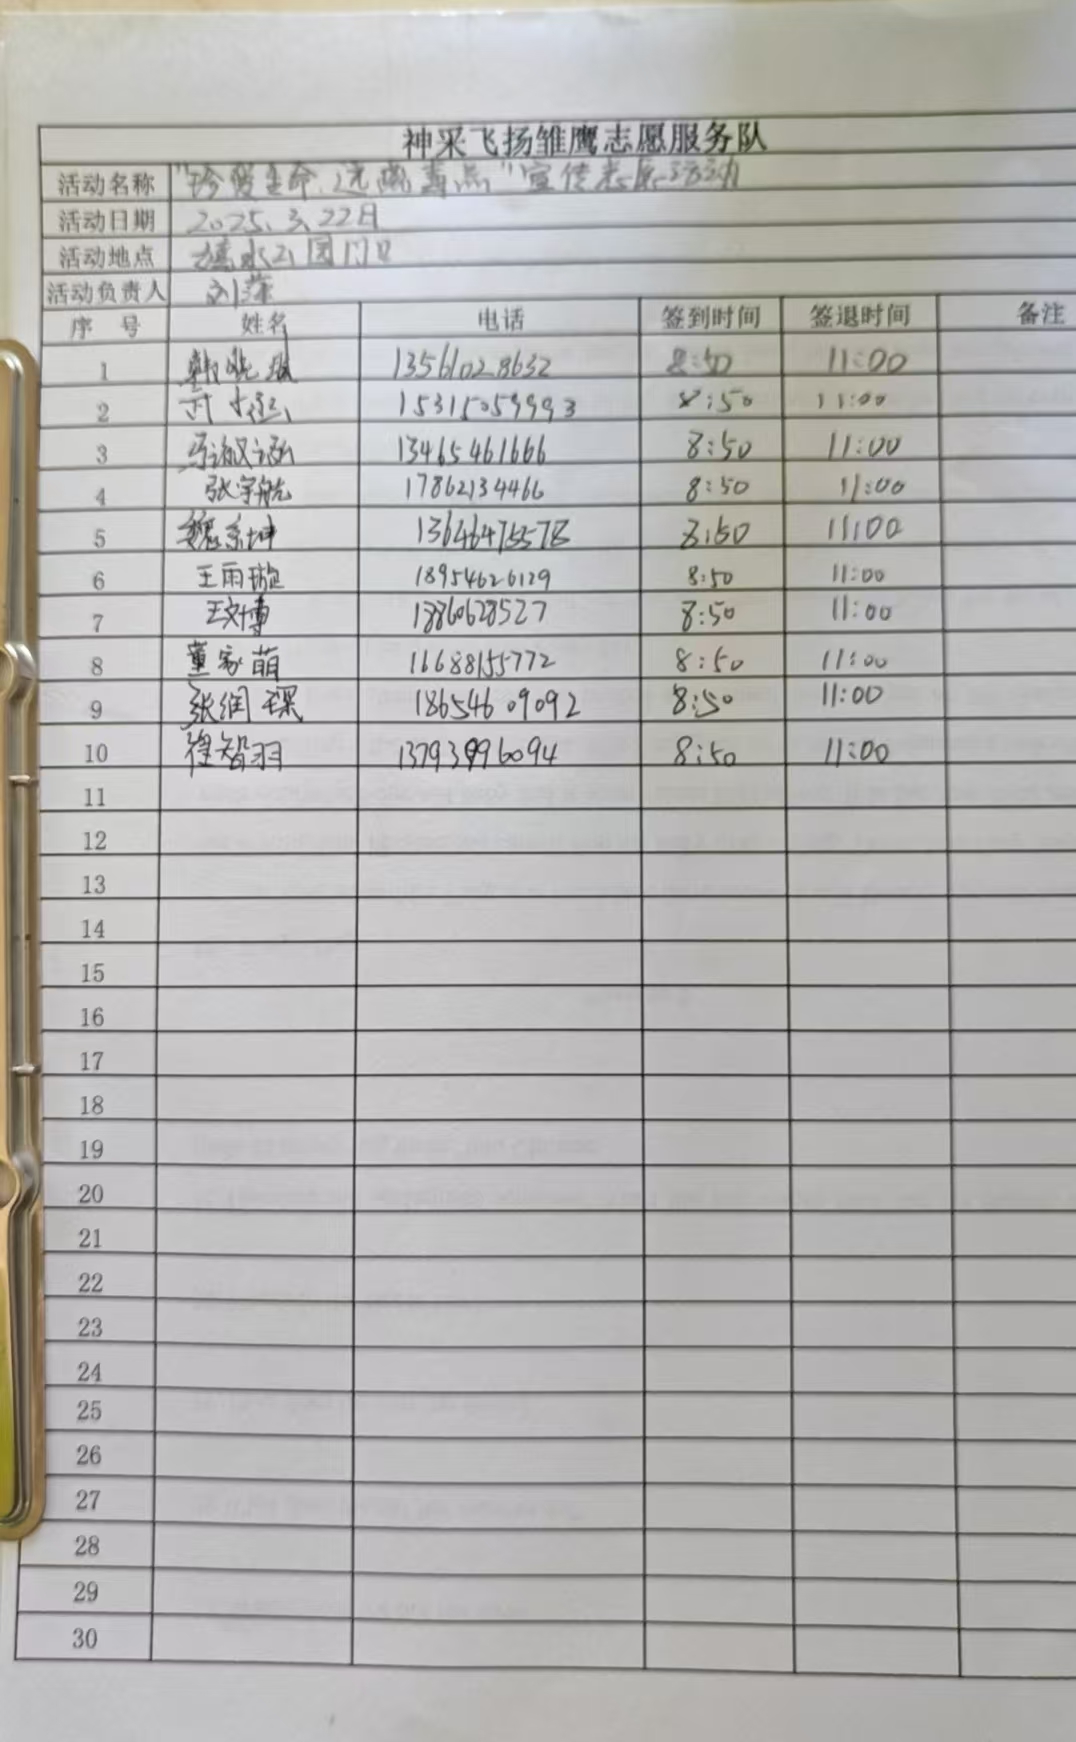 神采飞扬雏鹰志愿服务队
活动名称 "珍爱生命,远离毒品"宣传志愿活动
活动日期 2025.3.22日
活动地点 公园门口
活动负责人 刘萍
序号 姓名 电话 签到时间 签退时间 备注
1 韩晓 13561028632 8:50 11:00
2 15315059993 8:50 11:00
3 马淑涵 13465461666 8:50 11:00
4 张宇航 17862134466 8:50 11:00
5 魏系坤 13646475578 8:50 11:00
6 王雨璇 18954626129 8:50 11:00
7 王文博 18860628527 8:50 11:00
8 董家萌 16688155772 8:50 11:00
9 张润琛 18654609092 8:50 11:00
10 徐智羽 13793996094 8:50 11:00
11
12
13
14
15
16
17
18
19
20
21
22
23
24
25
26
27
28
29
30